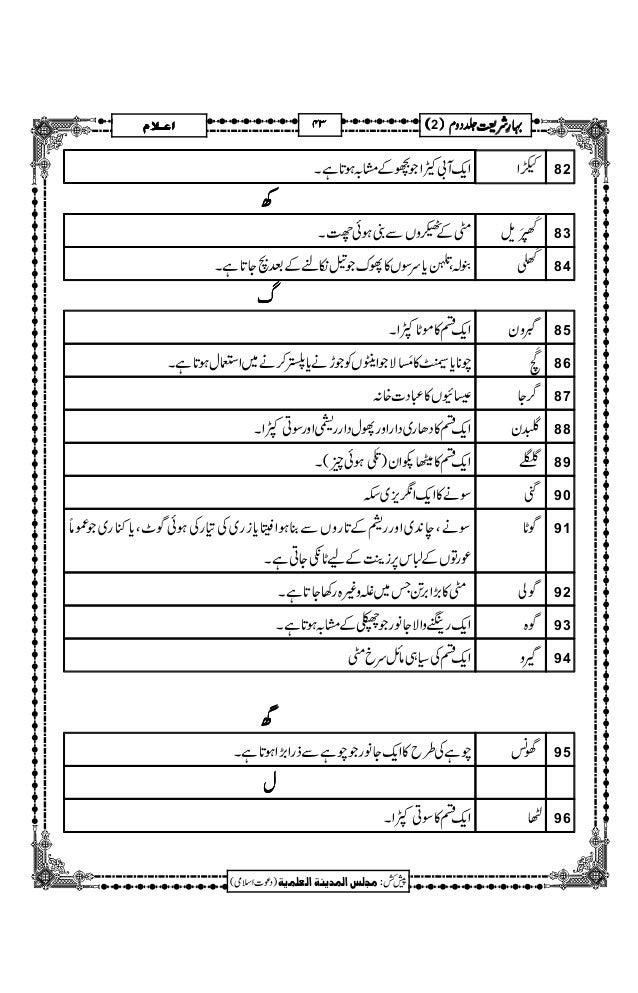 بہارِ شریعت جلد دوم (2) ۴۳ اعلام
82 کیکڑا ایک آبی کیڑا جو بچھو کے مشابہ ہوتا ہے۔
کھ
83 کَھپْرَیل مٹی کے ٹھیکروں سے بنی ہوئی چھت۔
84 کَھلی بنولہ، تلہن یا سرسوں کا پھوک جو تیل نکالنے کے بعد بچ جاتا ہے۔
گ
85 گبرون ایک قسم کا موٹا کپڑا۔
86 گَچ چونا یا سیمنٹ کا مَسالا جو اینٹوں کو جوڑنے یا پلستر کرنے میں استعمال ہوتا ہے۔
87 گرجا عیسائیوں کا عبادت خانہ
88 گلبدن ایک قسم کا دھاری دار اور پھول دار ریشمی اور سوتی کپڑا۔
89 گلگلے ایک قسم کا میٹھا پکوان (تلی ہوئی چیز)۔
90 گنی سونے کا ایک انگریزی سکہ
91 گوٹا سونے، چاندی اور ریشم کے تاروں سے بنا ہوا فیتا یا زری کی تیار کی ہوئی گوٹ، یا کناری جو عموماً
عورتوں کے لباس پر زینت کے لیے ٹانکی جاتی ہے۔
92 گولی مٹی کا بڑا برتن جس میں غلہ وغیرہ رکھا جاتا ہے۔
93 گوہ ایک رینگنے والا جانور جو چھپکلی کے مشابہ ہوتا ہے۔
94 گیرو ایک قسم کی سیاہی مائل سرخ مٹی
گھ
95 گھونس چوہے کی طرح کا ایک جانور جو چوہے سے ذرا بڑا ہوتا ہے۔
ل
96 لٹھا ایک قسم کا سوتی کپڑا۔
پیش کش: مجلس المدینۃ العلمیۃ (دعوت اسلامی)